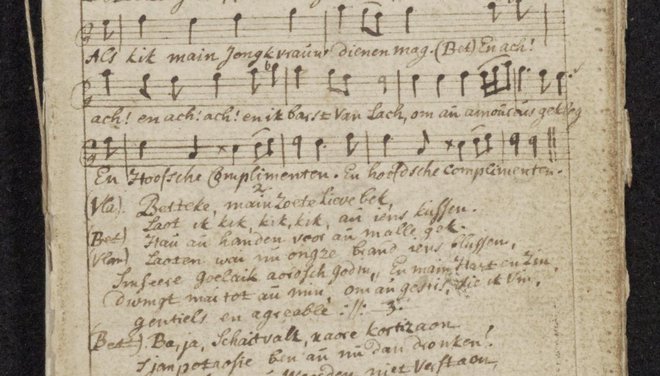 Als kik main Jongkvrauw dienen mag. (Bet) En ach!
ach! en ach! ach! en ik barst van Lach, om aú amoúreús gekleg
En Hoofsche Complimenten. En hoofdsche complimenten.
Vla). Betteke, main zoete Lieve bek,
2,
Laot ik kik, kik, kik, aú iens kussen.
Bet) Haú aú handen voor aú malle gek.
Vlao) Laoten wai nú ongze brand iens blussen,
aorosch En main Hart en Zin,
Dwingt mai tot aú min, om aú die ik Vin,
gentiels en agreable ://: 3.
(Bet) Ba, ja, Schaitvalk, naore
ben aú nú dan dronken!
niet Verstaon,